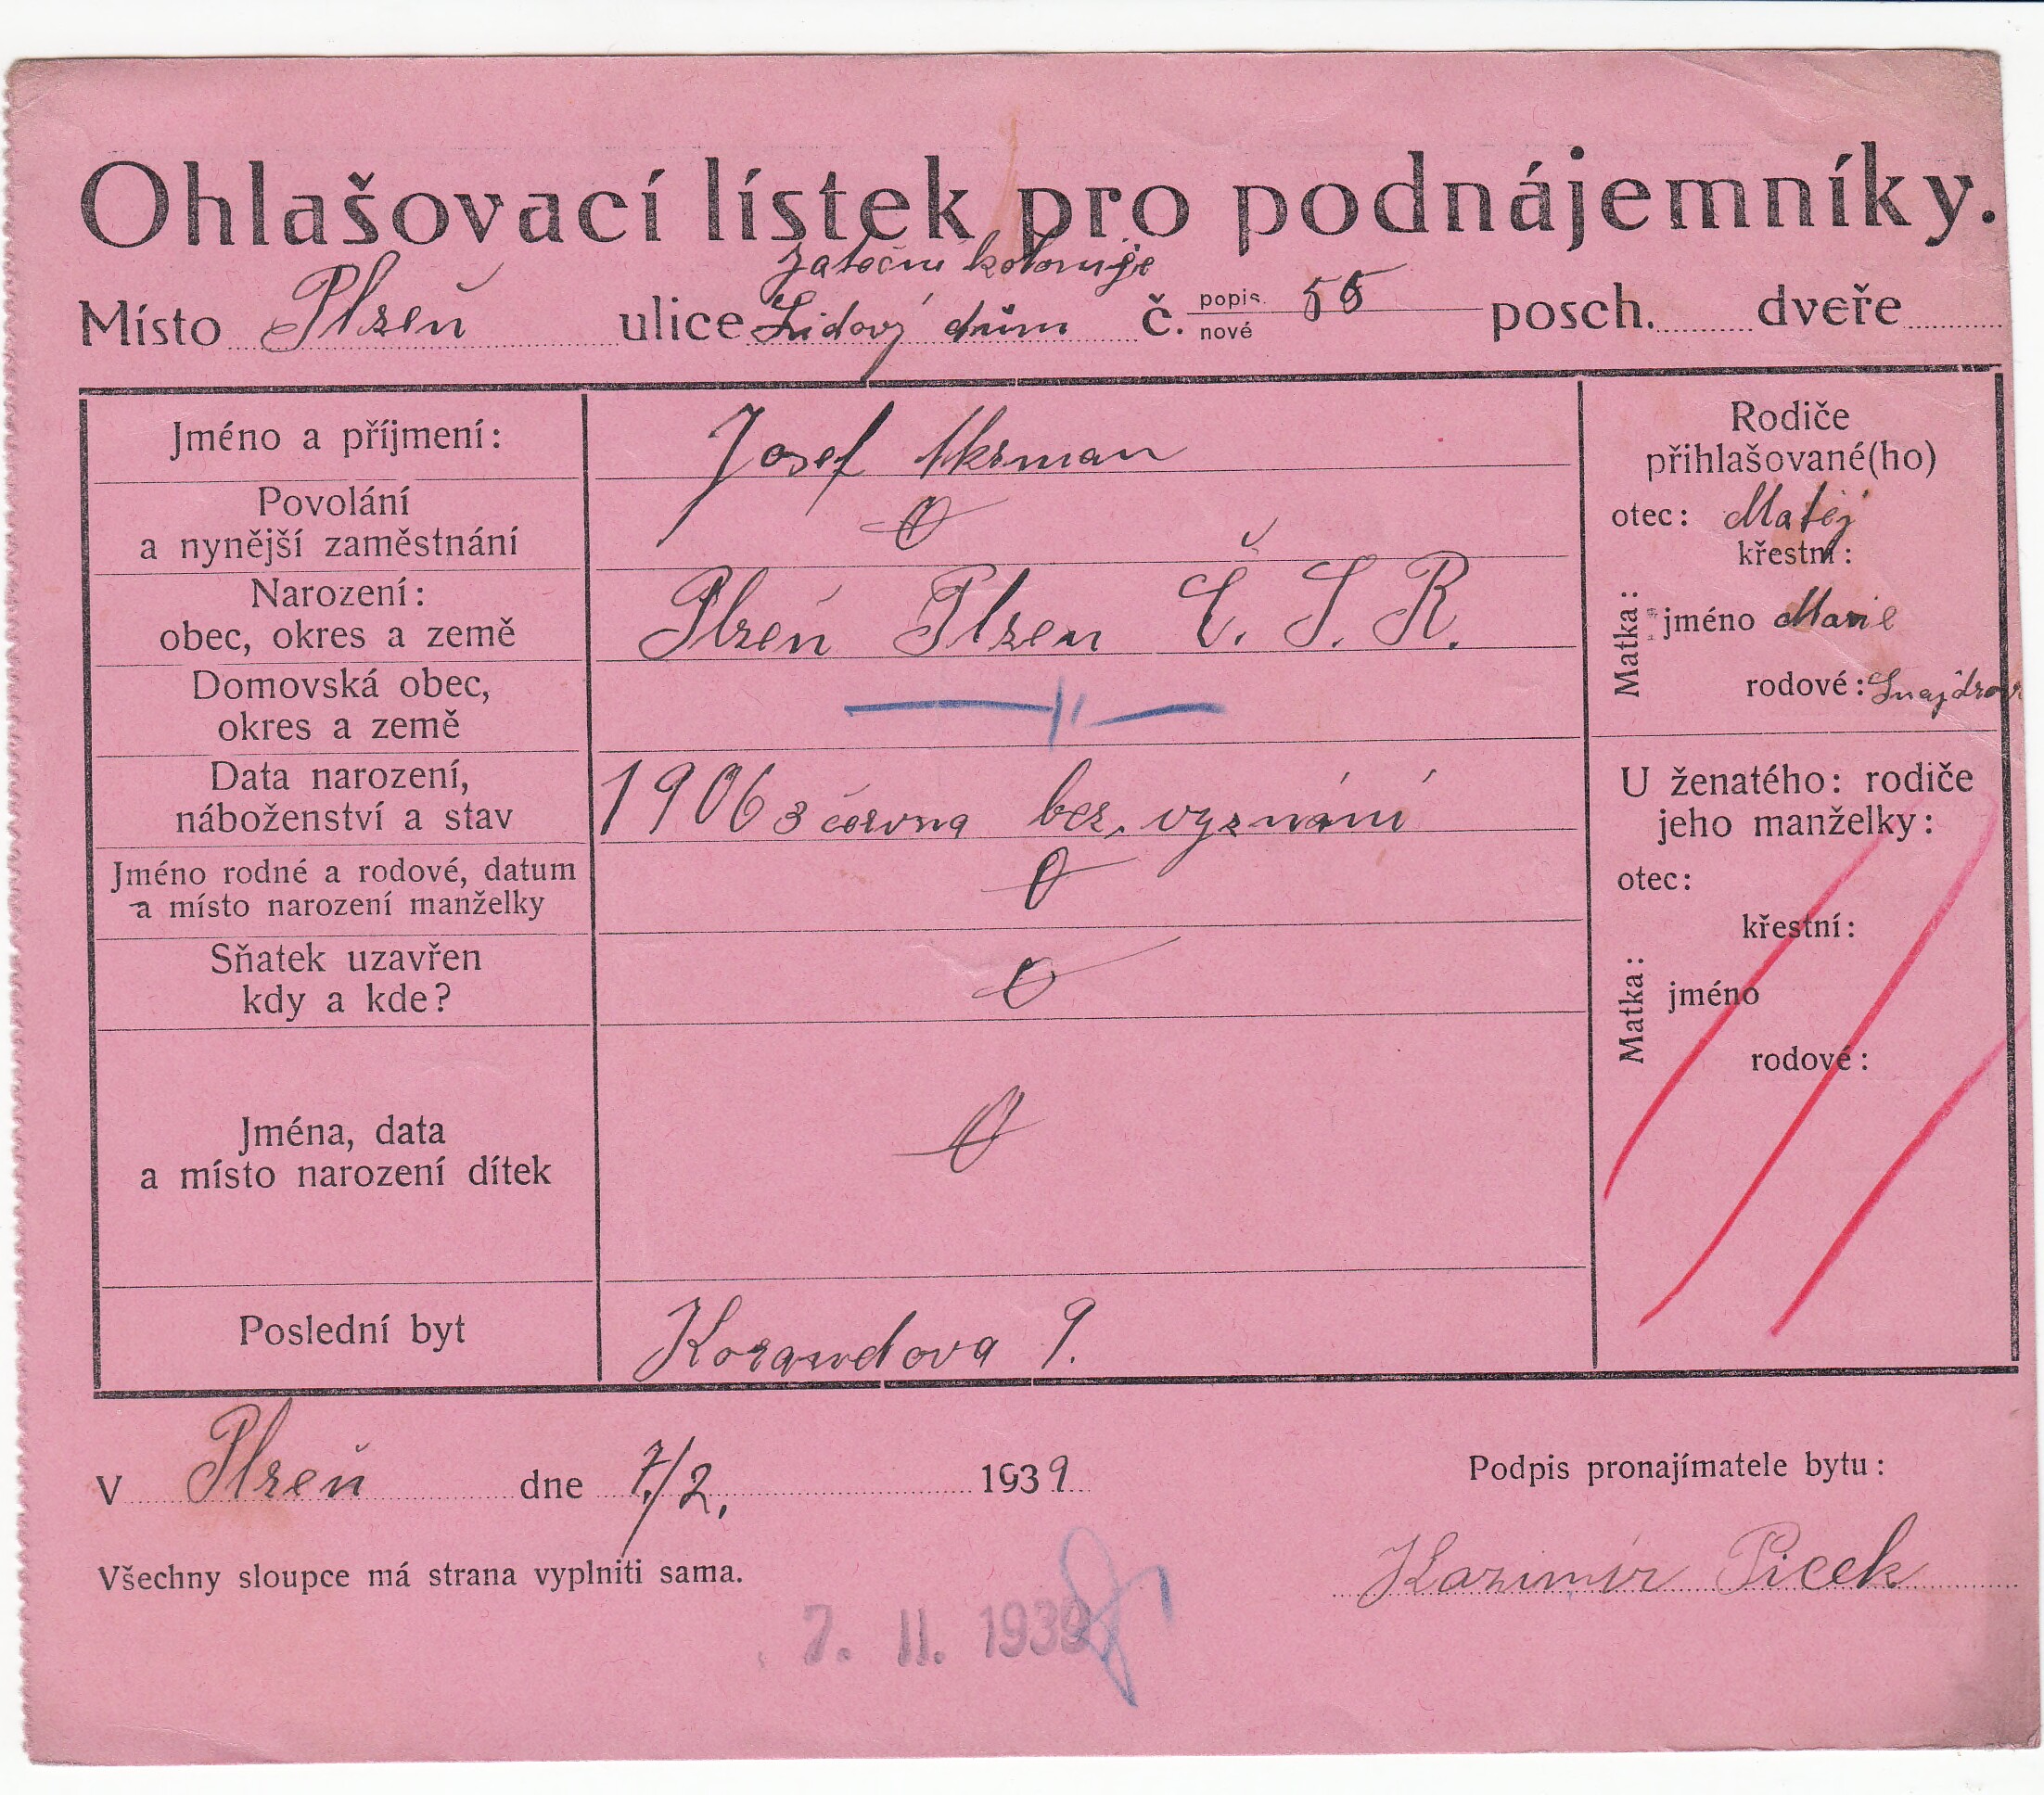 Ohlašovací lístek pro podnájemníky.
kolonije
Místo Plzeň ulice Lidový dům č. popis. nové 55 posch. dveře
Jméno a příjmení: Josef Akrman
Povolání
a nynější zaměstnání 0
Narození:
obec, okres a země Plzeň Plzen Č. S. R.
Domovská obec,
okres a země — " —
Data narození,
náboženství a stav 1906 3 června bez vyznání
Jméno rodné a rodové, datum
a místo narození manželky 0
Sňatek uzavřen
kdy a kde? 0
Jména, data
a místo narození dítek 0
Poslední byt Korandova 9.
Rodiče
přihlašované(ho)
otec: Matěj
křestní:
Matka: jméno Marie
rodové: Šnajdrov
U ženatého: rodiče
jeho manželky:
otec:
křestní:
Matka: jméno
rodové:
V Plzeň dne 7/2. 1939
Podpis pronajímatele bytu:
Všechny sloupce má strana vyplniti sama.
Kazimír Picek
7. II. 1939